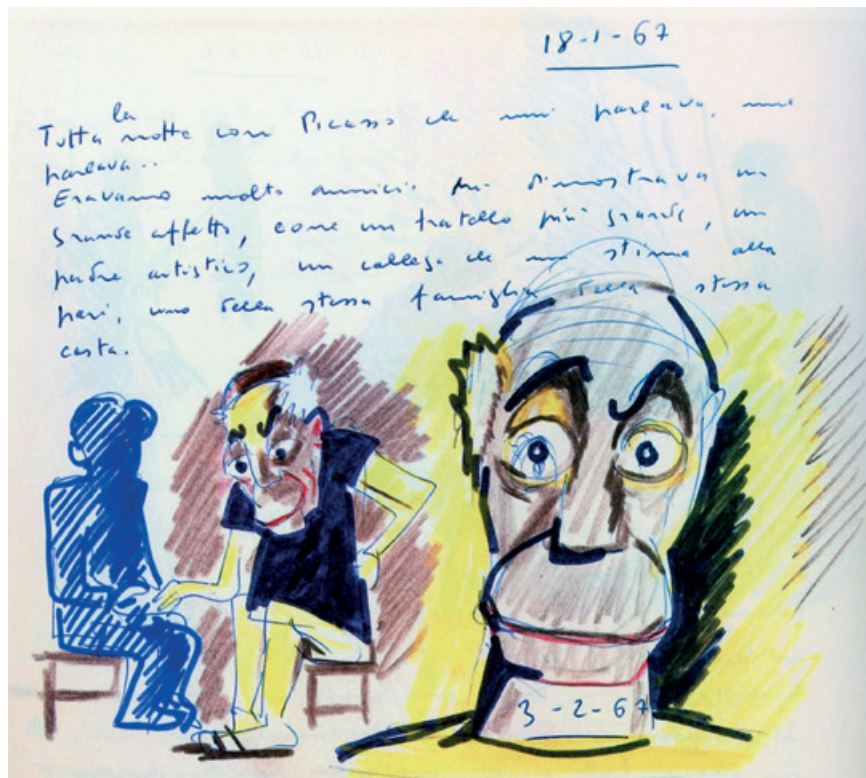 18-1-67
la
Tutta notte con Picasso che mi parlava, mi
parlava..
Eravamo molto amici. Mi dimostrava un
grande affetto, come un fratello più grande, un
padre artistico, un collega che mi stima alla
pari, uno della stessa famiglia della stessa
casta.
3-2-67